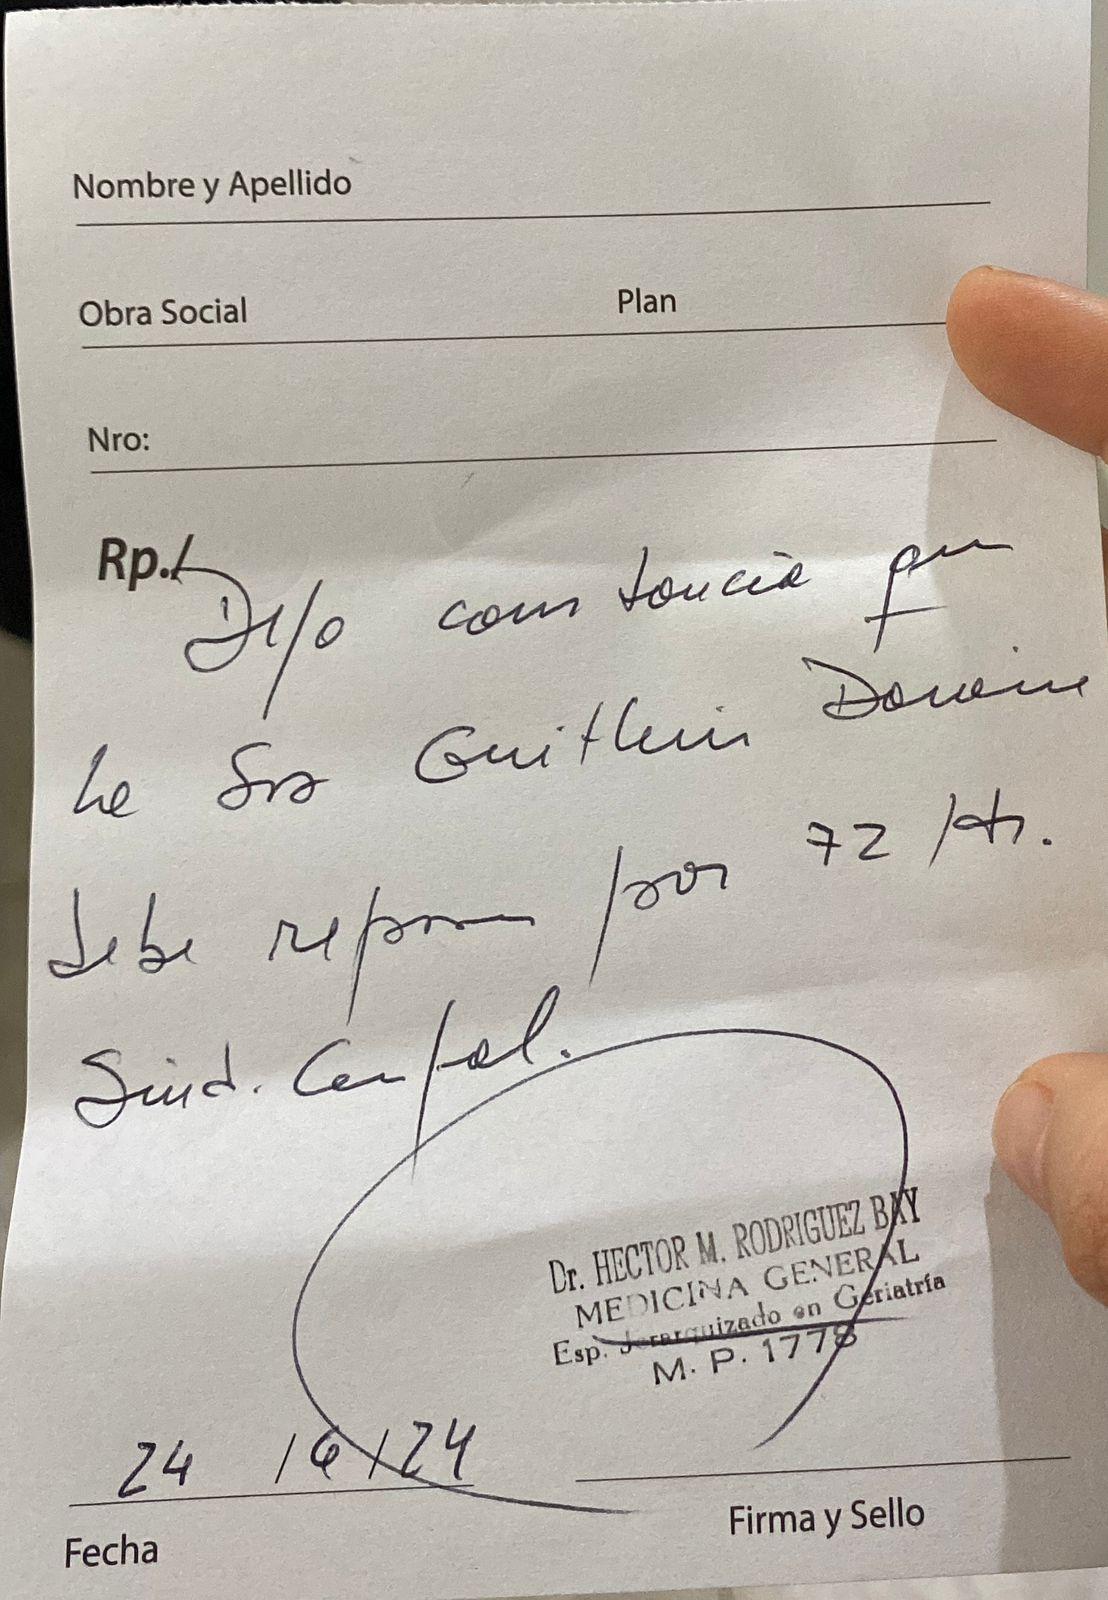 Nombre y Apellido
Obra Social Plan
Nro:
Rp./
Dejo constancia que
la Sra
debe repos por 72 Hs.
Sind. Carpal.
Dr. HECTOR M. RODRIGUEZ BAY
MEDICINA GENERAL
Esp. Jerarquizado en Geriatría
M. P. 1778
24 /6/24
Fecha
Firma y Sello